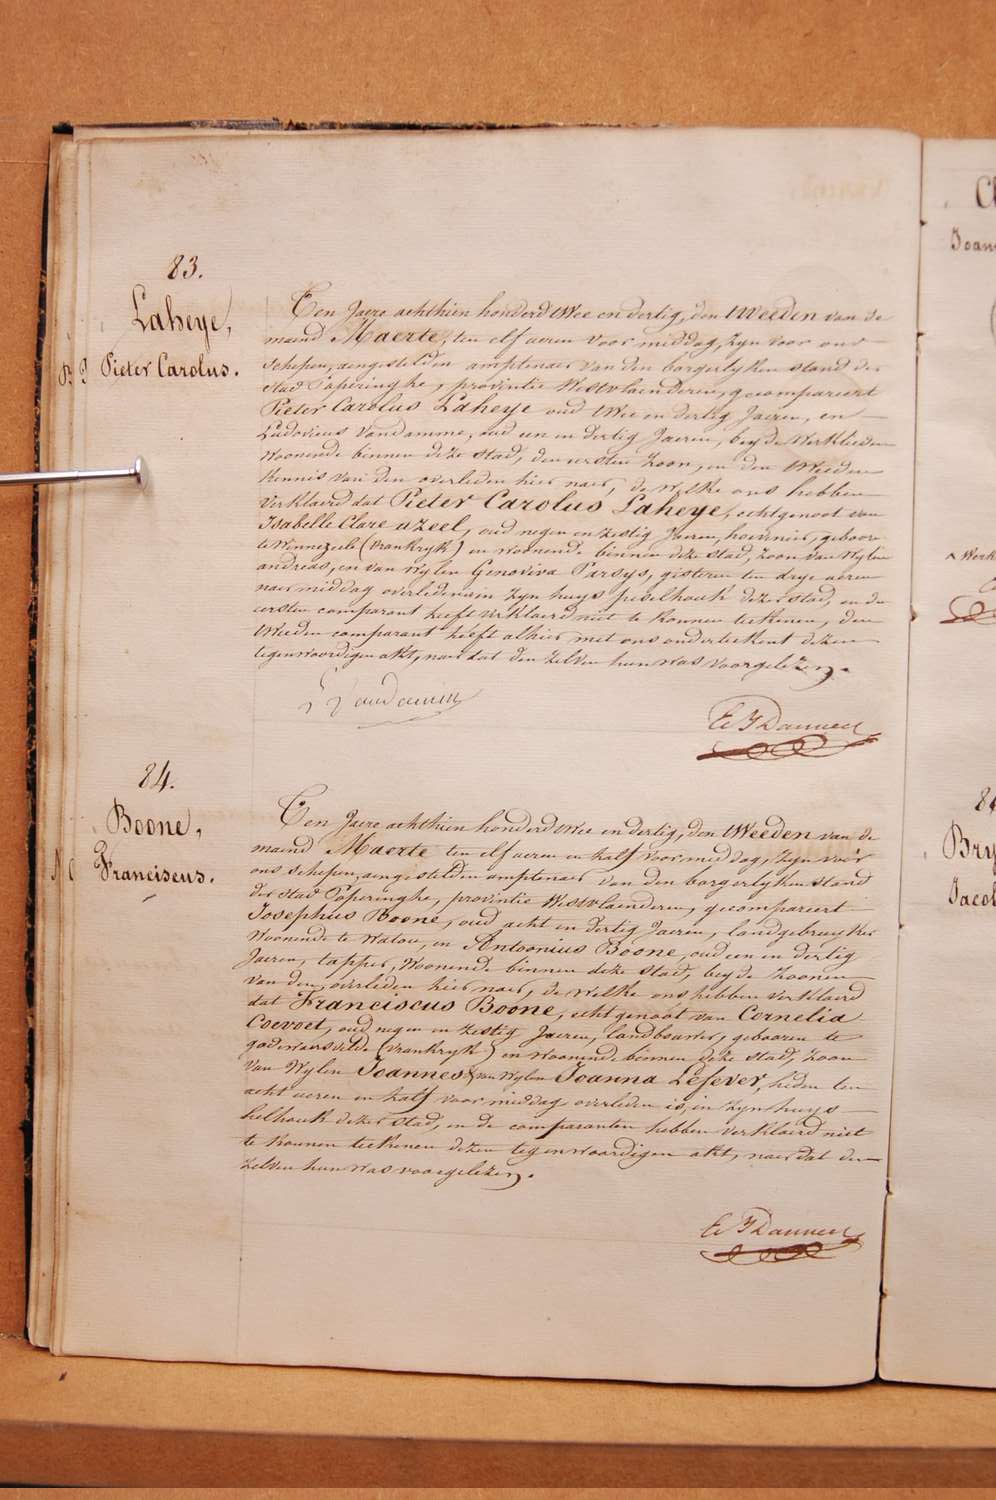 83.
Laheye,
Pieter Carolus.
Ten Jaere achthien honderd twee en dertig, den tweeden van de
maend Maerte, ten elf ueren voor middag, zyn voor ons
schepen, aengestelden amptenaer van den borgerlyken stand der
stad Poperinghe, provintie Westvlaenderen, gecompareert
Pieter Carolus Laheye oud twee en dertig Jaeren, en
Ludovicus Vandamme, oud een en dertig Jaeren, beyde werklieden
woonende binnen deze stad, den eersten zoon, en den tweeden
kennis van den overleden hier naer, de welke ons hebben
verklaerd dat Pieter Carolus Laheye, echtgenoot van
Isabelle Clare uzeel, oud negen en zestig Jaeren, hovenier, geboore
te Winnezeele (vrankryk) en woonende binnen deze stad, zoon van wylen
andreas, en van wylen Genoviva Parsys, gisteren ten drye ueren
naer middag overleden is in zyn huys peselhouk dezer stad, en den
eersten comparant heeft verklaerd niet te konnen teekenen, den
tweeden comparant heeft alhier met ons onderteekent dezen
tegenwoordigen akt, naer dat den zelven hun was voorgelezen.
L Vandamme
84.
Boone,
Franciscus.
Ten Jaere achthien honderd twee en dertig, den tweeden van de
maend Maerte ten elf ueren en half voor middag, zyn voor
ons schepen, aengestelden amptenaer van den borgerlyken stand
der stad Poperinghe, provintie Westvlaenderen, gecompareert
Josephus Boone, oud acht en dertig Jaeren, landgebruyker
woonende te Watou, en Antoonius Boone, oud een en dertig
Jaeren, tapper, woonende binnen deze stad, beyde zoonen
van den overleden hier naer, de welke ons hebben verklaerd
dat Franciscus Boone, echtgenoot van Cornelia
Coevoet, oud negen en zestig Jaeren, landbouwer, gebooren te
godewaersvelde (vrankryk) en woonende binnen deze stad, zoon
van wylen Joannes & van wylen Joanna Lefever, heden ten
acht ueren en half voor middag overleden is, in zyn huys
helhouk dezer stad, en de comparanten hebben verklaerd niet
te konnen teekenen dezen tegenwoordigen akt, naer dat den
zelven hun was voorgelezen.